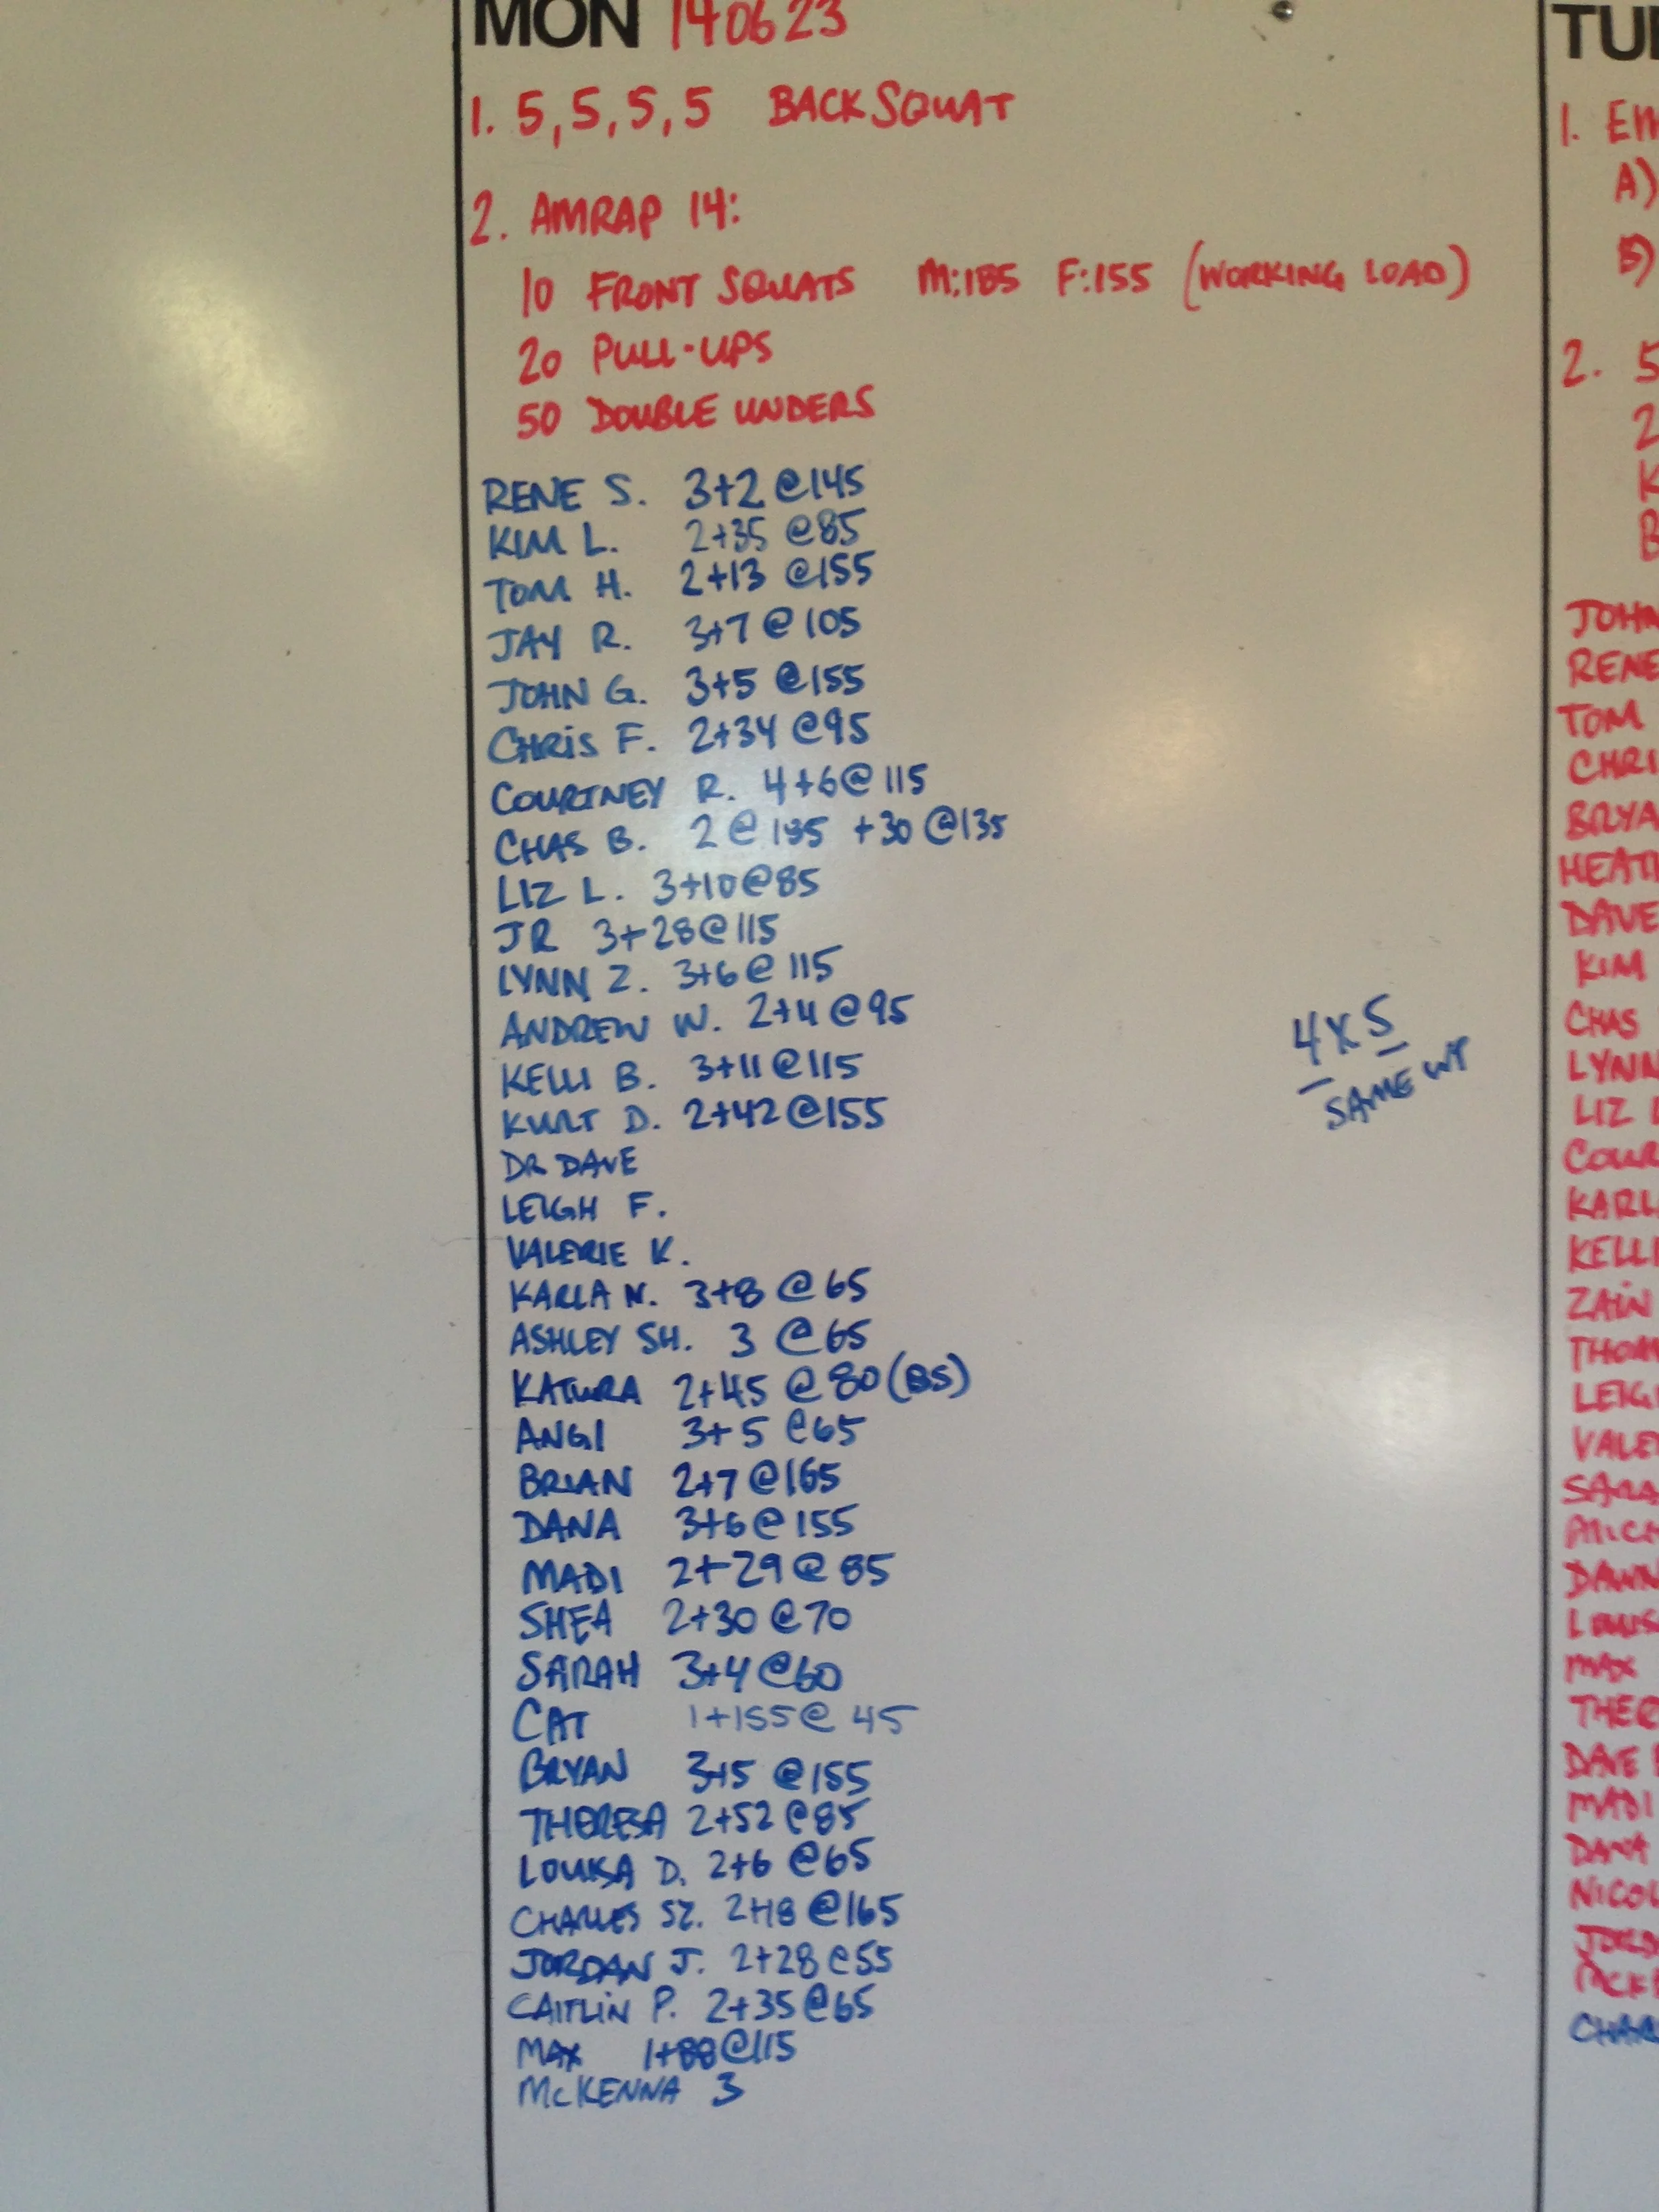 MON 140623
1. 5,5,5,5 BACK SQUAT
2. AMRAP 14:
10 FRONT SQUATS M:185 F:155 (WORKING LOAD)
20 PULL-UPS
50 DOUBLE UNDERS
RENE S. 3+2 @145
KIM L. 2+35 @85
TOM H. 2+13 @155
JAY R. 3+7 @ 105
JOHN G. 3+5 @155
CHRIS F. 2+34 @95
COURTNEY R. 4+6 @ 115
CHAS B. 2 @ +30 @135
LIZ L. 3+10 @85
JR 3+28 @ 115
LYNN Z. 3+6 @ 115
ANDREW W. 2+4 @ 95
KELLI B. 3+11 @ 115
KURT D. 2+42 @155
DR DAVE
LEIGH F.
VALERIE K.
KARLA N. 3+8 @ 65
ASHLEY SH. 3 @ 65
KATURA 2+45 @ 80 (BS)
ANGI 3+5 @65
BRIAN 2+7 @ 165
DANA 3+6 @ 155
MADI 2+29 @ 85
SHEA 2+30 @ 70
SARAH 3+4 @60
CAT 1+155 @ 45
BRYAN 3+5 @155
THERESA 2+52 @85
LOUISA D. 2+6 @65
CHARLES SZ. 2+18 @165
JORDAN J. 2+28 @55
CAITLIN P. 2+35 @65
MAX 1+88 @115
MCKENNA 3
4X5
SAME WT
TUE
1. EM
A)
B)
2. 5
2
K
B
JOHN
RENE
TOM
CHRI
BRYA
HEATH
DAVE
KIM
CHAS
LYNN
LIZ L
COUR
KARL
KELLI
ZAIN
THOM
LEIG
VALE
SARA
MICH
DAWN
LOUIS
MAX
THER
DAVE
MADI
DANA
NICOL
JORD
MCK
CHAR